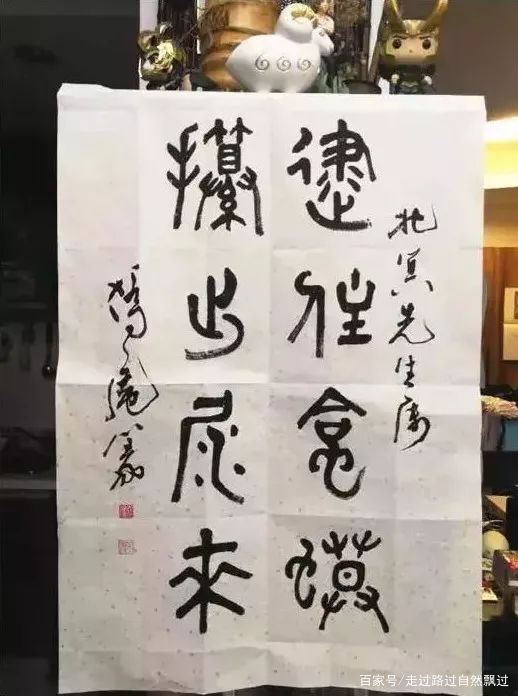 北冥先生属
逮住蛤蟆
攥出尿来
庵篆
百家号/走过路过自然飘过